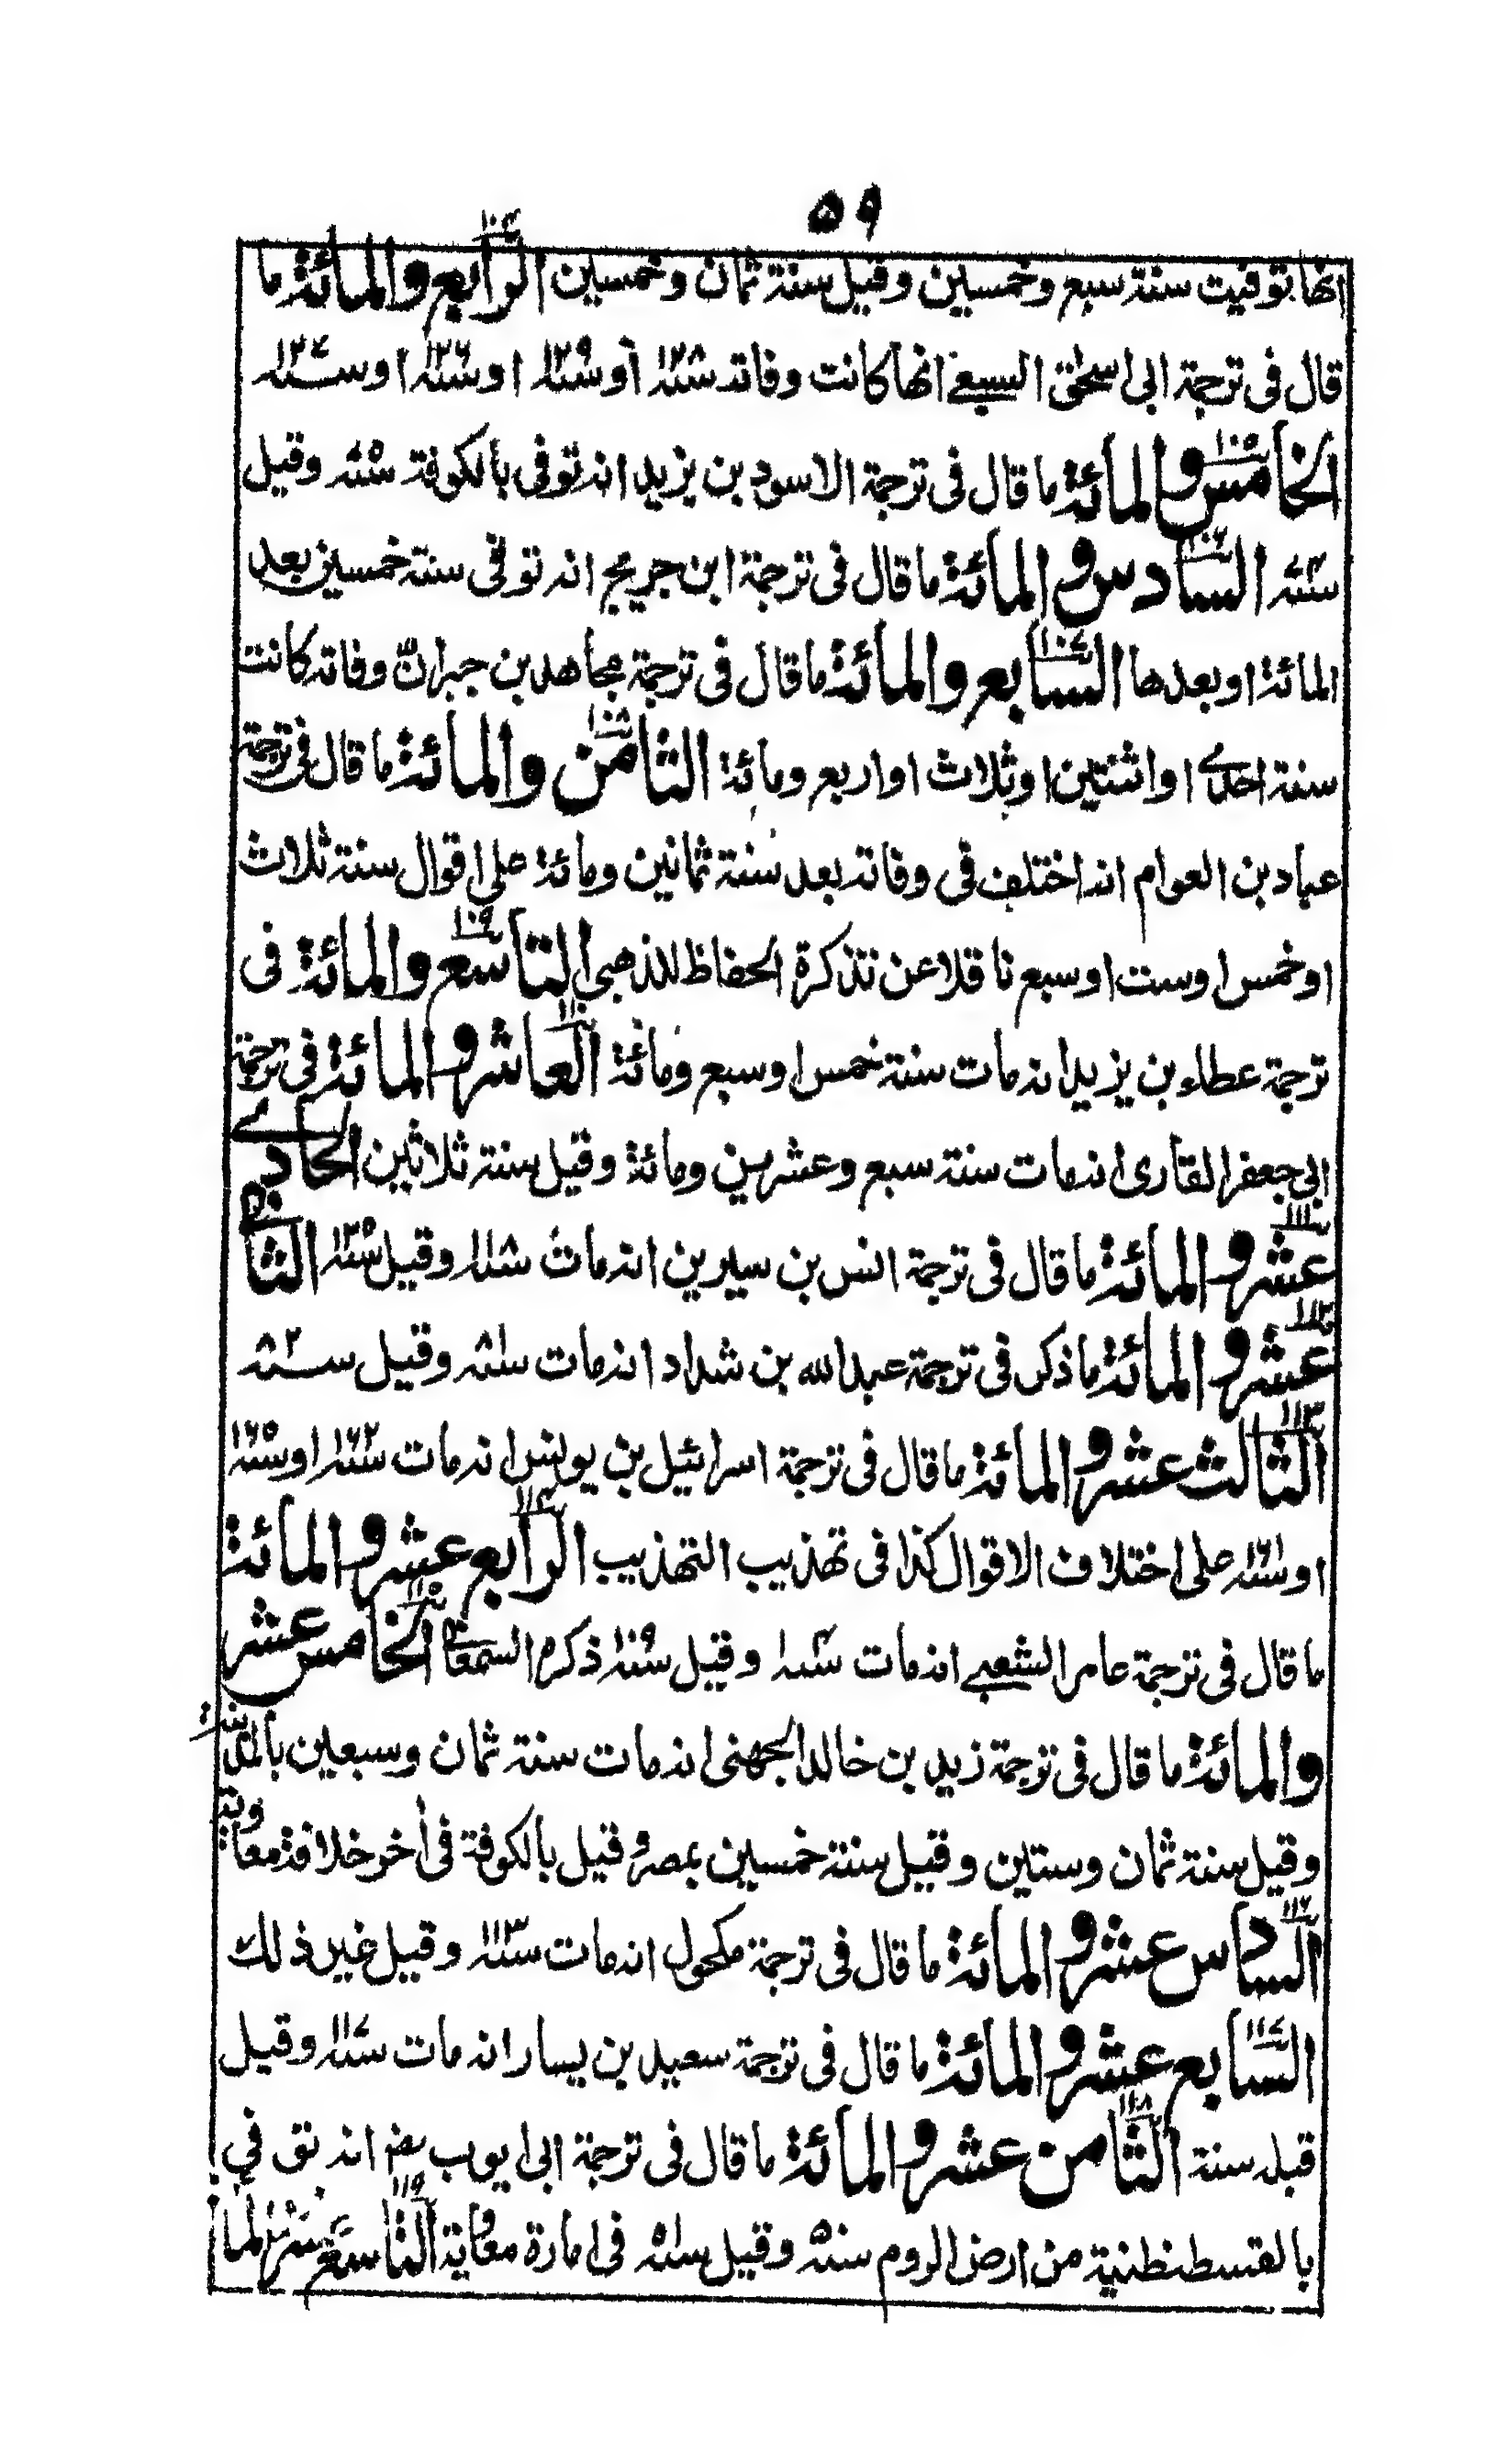 ٥٩
انها توفيت سنة سبع وخمسين وقيل سنة ثمان وخمسين الرابع والمائة ما
قال فى ترجمة ابى اسحٰق السبيعے انها كانت وفاته سنة ١٢٨ او سنة ١٢٩ او سنة ١٢٦ او سنة ١٢٧
الخامس والمائة ما قال فى ترجمة الاسود بن يزيد انه توفى بالكوفة سنة ٧٥ وقيل
سنة ٧٤ السادس والمائة ما قال فى ترجمة ابن جريج انه توفى سنة خمسين بعد
المائة او بعدها السابع والمائة ما قال فى ترجمة مجاهد بن جبر ان وفاته كانت
سنة احدے او اثنتين او ثلاث او اربع ومائة الثامن والمائة ما قال فى ترجمة
عباد بن العوام انه اختلف فى وفاته بعد سنة ثمانين ومائة على اقوال سنة ثلاث
او خمس او ست او سبع ناقلا عن تذكرة الحفاظ للذهبى التاسع والمائة فى
ترجمة عطاء بن يزيد انه مات سنة خمس او سبع ومائة العاشر والمائة فى ترجمة
ابى جعفر القارى انه مات سنة سبع وعشرين ومائة وقيل سنة ثلاثين الحادے
عشر والمائة ما قال فى ترجمة انس بن سيرين انه مات سنة ١١٨ وقيل سنة ١٢٠ الثانے
عشر والمائة ما ذكر فى ترجمة عبد الله بن شداد انه مات سنة ٨١ وقيل سنة ٨٢
الثالث عشر والمائة ما قال فى ترجمة اسرائيل بن يونس انه مات سنة ١٦٢ او سنة ١٦٥
او سنة ١٦١ على اختلاف الاقوال كذا فى تهذيب التهذيب الرابع عشر والمائة
ما قال فى ترجمة عامر الشعبے انه مات سنة ١٠٤ وقيل سنة ١٠٩ ذكره السمعانے الخامس عشر
والمائة ما قال فى ترجمة زيد بن خالد الجهنى انه مات سنة ثمان وسبعين بالمدينة
وقيل سنة ثمان وستين وقيل سنة خمسين بمصر وقيل بالكوفة فى اٰخر خلافة معاوية
السادس عشر والمائة ما قال فى ترجمة مكحول انه مات سنة ١١٣ وقيل غير ذلك
السابع عشر والمائة ما قال فى ترجمة سعيد بن يسار انه مات سنة ١١٧ وقيل
قبله سنة الثامن عشر والمائة ما قال فى ترجمة ابى ايوب رضـ انه توفي
بالقسطنطنية من ارض الروم سنة ٥٠ وقيل سنة ٥١ فى امارة معاوية التاسع عشر والمائة